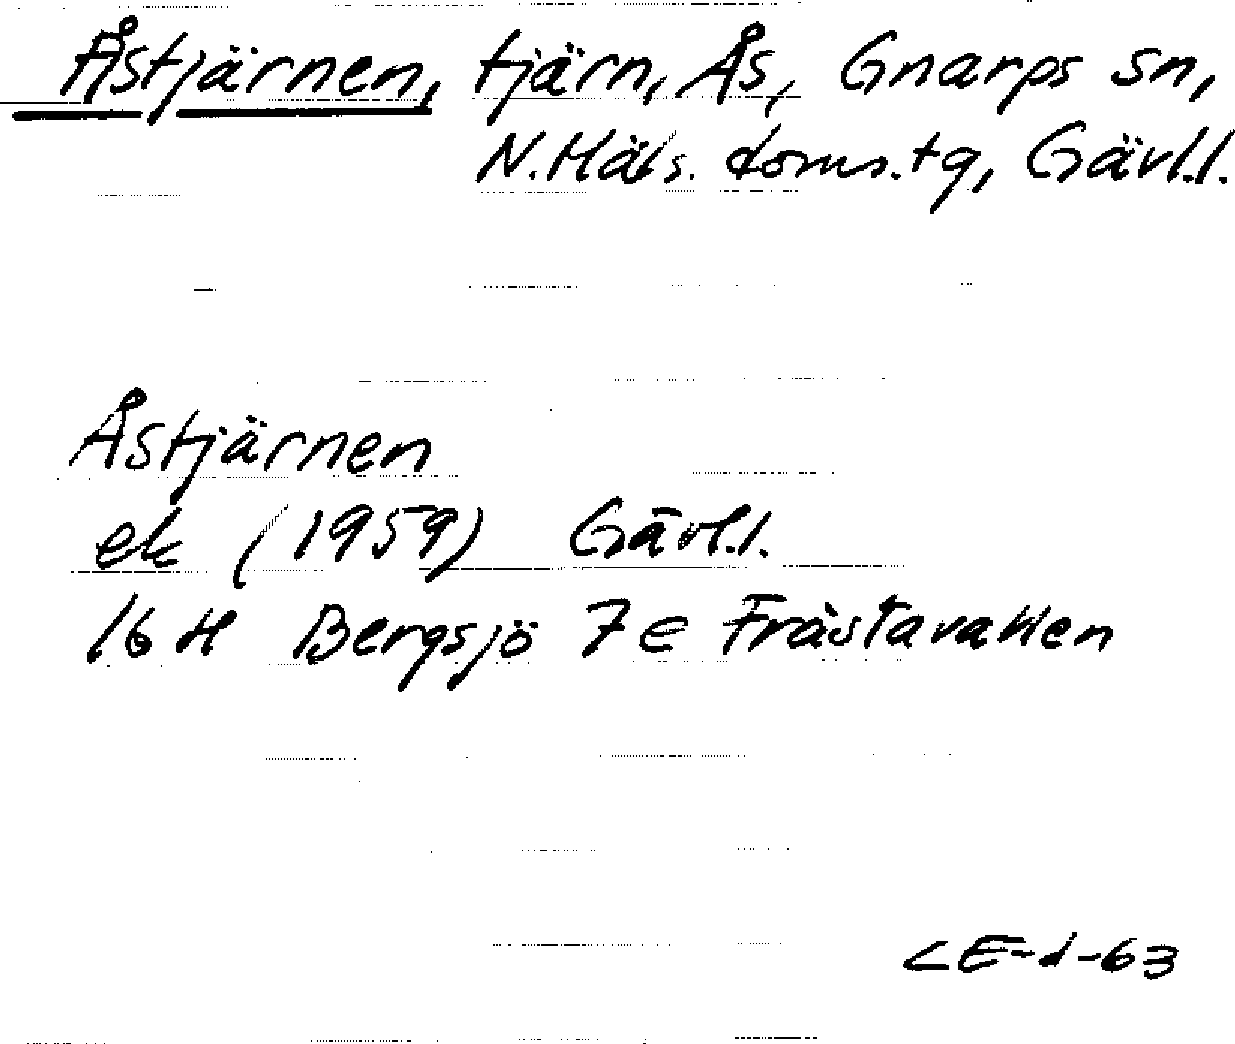 Åstjärnen, tjärn, Ås, Gnarps sn,
N.Häls. doms.tg, Gävl.l.
Åstjärnen
ek (1959) Gävl.l.
16 H Bergsjö 7 e Frästavallen
CE-d-63